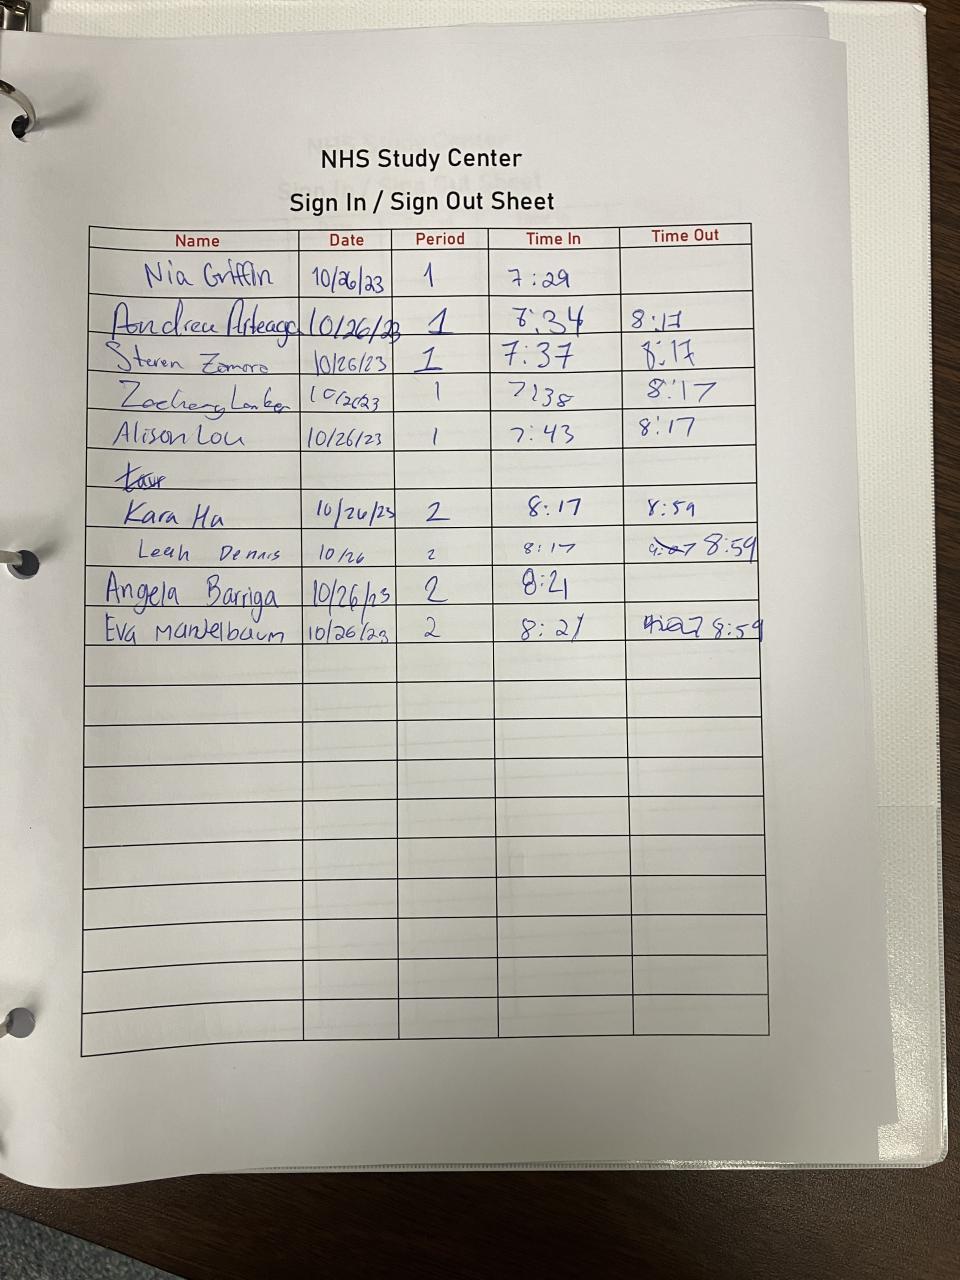 NHS Study Center
Sign In / Sign Out Sheet
Name Date Period Time In Time Out
Nia Griffin 10/26/23 1 7:29
Andrea Arteaga 10/26/23 1 7:34 8:17
Steven Zamora 10/26/23 1 7:37 8:17
Zachary 10/26/23 1 7:38 8:17
Alison Lou 10/26/23 1 7:43 8:17
Kara Ha 10/26/23 2 8:17 8:59
Leah Dennis 10/26 2 8:17 8:59
Angela Barriga 10/26/23 2 8:21
Eva Mandelbaum 10/26/23 2 8:21 8:59